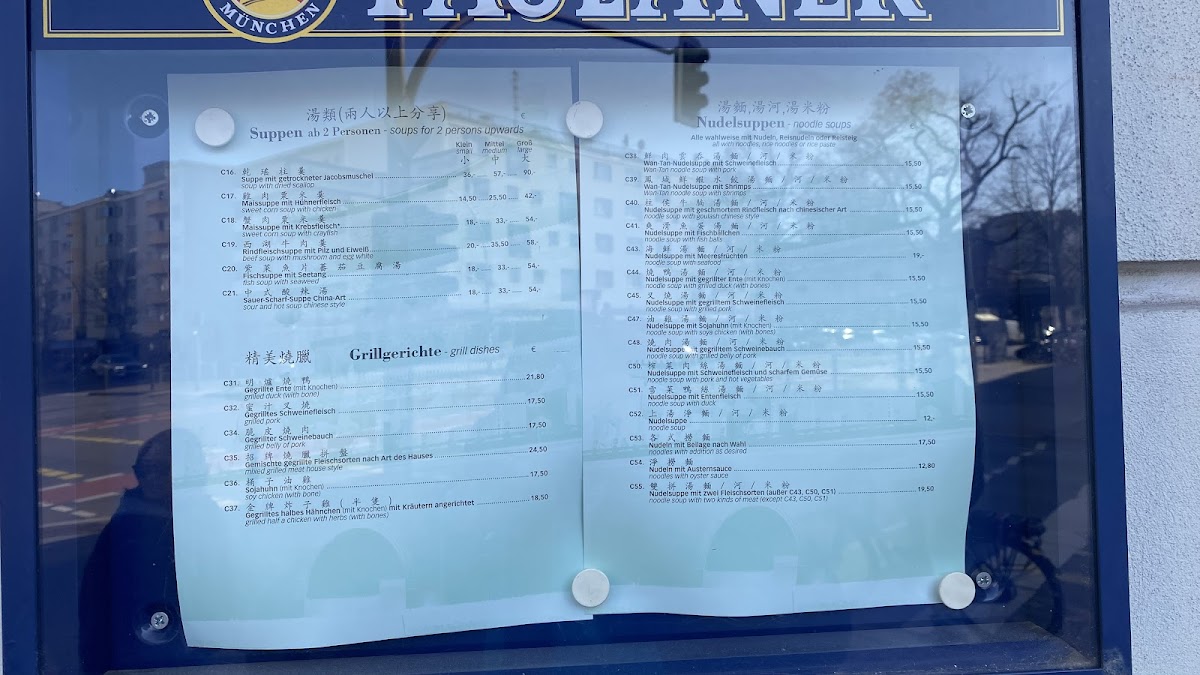 MÜNCHEN
PAULANER
湯類(兩人以上分享) €
Suppen ab 2 Personen - soups for 2 persons upwards
Klein Mittel Groß
small medium large
小 中 大
C16. 乾瑤柱羹
Suppe mit getrockneter Jacobsmuschel 36,- 57,- 90,-
soup with dried scallop
C17. 雞肉粟米羹
Maissuppe mit Hühnerfleisch 14,50 25,50 42,-
sweet corn soup with chicken
C18. 蟹肉粟米羹
Maissuppe mit Krebsfleisch* 18,- 33,- 54,-
sweet corn soup with crayfish
C19. 西湖牛肉羹
Rindfleischsuppe mit Pilz und Eiweiß 20,- 35,50 58,-
beef soup with mushroom and egg white
C20. 紫菜魚片蕃茄豆腐湯
Fischsuppe mit Seetang 18,- 33,- 54,-
fish soup with seaweed
C21. 中式酸辣湯
Sauer-Scharf-Suppe China-Art 18,- 33,- 54,-
sour and hot soup chinese style
精美燒臘 Grillgerichte - grill dishes €
C31. 明爐燒鴨
Gegrillte Ente (mit Knochen) 21,80
grilled duck (with bone)
C32. 蜜汁叉燒
Gegrilltes Schweinefleisch 17,50
grilled pork
C34. 脆皮燒肉
Gegrillter Schweinebauch 17,50
grilled belly of pork
C35. 招牌燒臘拼盤
Gemischte gegrillte Fleischsorten nach Art des Hauses 24,50
mixed grilled meat house style
C36. 桶子油雞
Sojahuhn (mit Knochen) 17,50
soy chicken (with bone)
C37. 金牌炸子雞(半隻)
Gegrilltes halbes Hähnchen (mit Knochen) mit Kräutern angerichtet 18,50
grilled half a chicken with herbs (with bones)
湯麵,湯河,湯米粉
Nudelsuppen - noodle soups
Alle wahlweise mit Nudeln, Reisnudeln oder Reisteig
all with noodles, rice noodles or rice paste
C33. 鮮肉雲吞湯麵/河/米粉
Wan-Tan-Nudelsuppe mit Schweinefleisch 15,50
Wan Tan noodle soup with pork
C39. 鳳城鮮蝦水餃湯麵/河/米粉
Wan-Tan-Nudelsuppe mit Shrimps 15,50
Wan-Tan noodle soup with shrimps
C40. 柱侯牛腩湯麵/河/米粉
Nudelsuppe mit geschmortem Rindfleisch nach chinesischer Art 15,50
noodle soup with goulash chinese style
C41. 爽滑魚蛋湯麵/河/米粉
Nudelsuppe mit Fischbällchen 15,50
noodle soup with fish balls
C43. 海鮮湯麵/河/米粉
Nudelsuppe mit Meeresfrüchten 19,-
noodle soup with seafood
C44. 燒鴨湯麵/河/米粉
Nudelsuppe mit gegrillter Ente (mit Knochen) 15,50
noodle soup with grilled duck (with bones)
C45. 叉燒湯麵/河/米粉
Nudelsuppe mit gegrilltem Schweinefleisch 15,50
noodle soup with grilled pork
C47. 油雞湯麵/河/米粉
Nudelsuppe mit Sojahuhn (mit Knochen) 15,50
noodle soup with soya chicken (with bones)
C48. 燒肉湯麵/河/米粉
Nudelsuppe mit gegrilltem Schweinebauch 15,50
noodle soup with grilled belly of pork
C50. 榨菜肉絲湯麵/河/米粉
Nudelsuppe mit Schweinefleisch und scharfem Gemüse 15,50
noodle soup with pork and hot vegetables
C51. 雪菜鴨絲湯麵/河/米粉
Nudelsuppe mit Entenfleisch 15,50
noodle soup with duck
C52. 上湯淨麵/河/米粉
Nudelsuppe 12,-
noodle soup
C53. 各式撈麵
Nudeln mit Beilage nach Wahl 17,50
noodles with addition as desired
C54. 淨撈麵
Nudeln mit Austernsauce 12,80
noodles with oyster sauce
C55. 雙拼湯麵/河/米粉
Nudelsuppe mit zwei Fleischsorten (außer C43, C50, C51) 19,50
noodle soup with two kinds of meat (except C43, C50, C51)